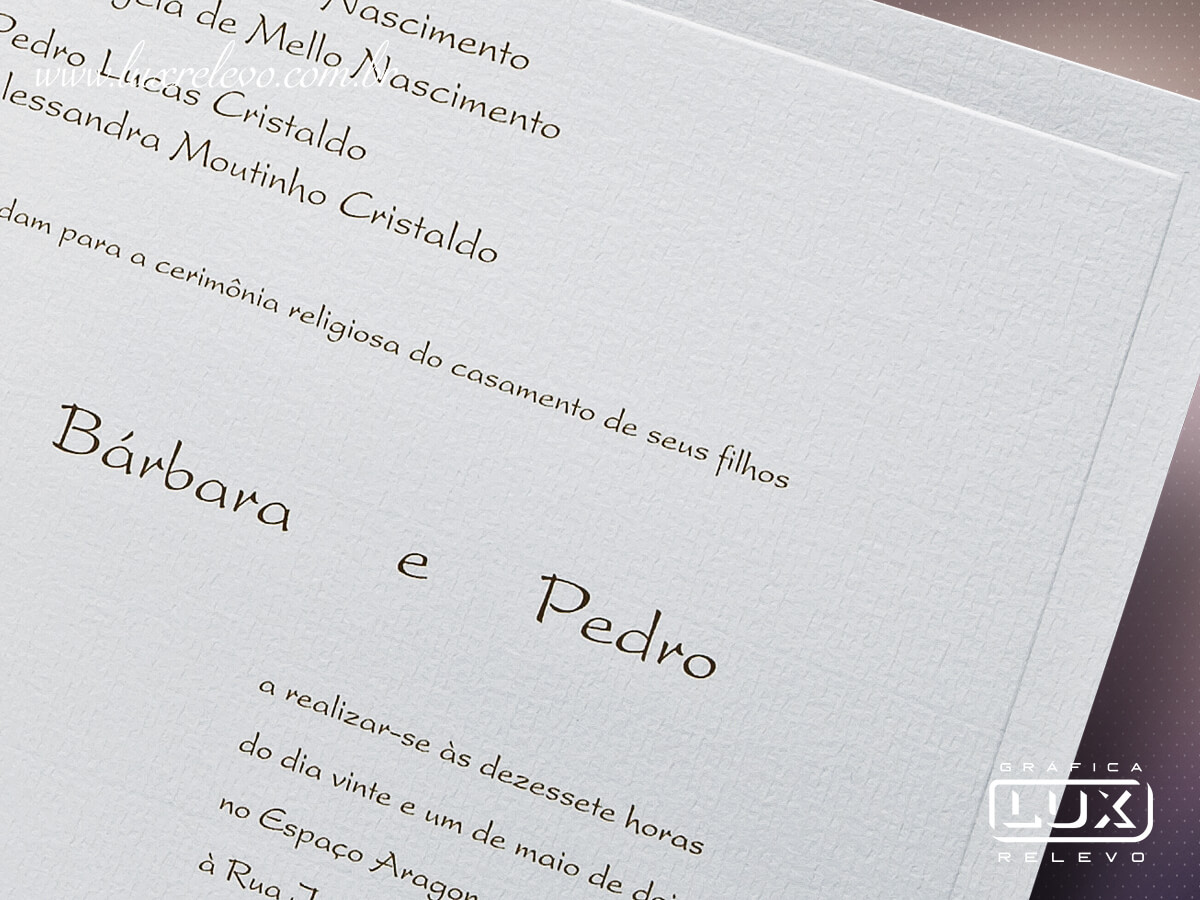 Nascimento
de Mello Nascimento
Pedro Lucas Cristaldo
Moutinho Cristaldo
para a cerimônia religiosa do casamento de seus filhos
Bárbara e Pedro
a realizar-se às dezessete horas
do dia vinte e um de maio de
no Espaço
à Rua
www.luxrelevo.com.br
GRÁFICA
LUX
RELEVO